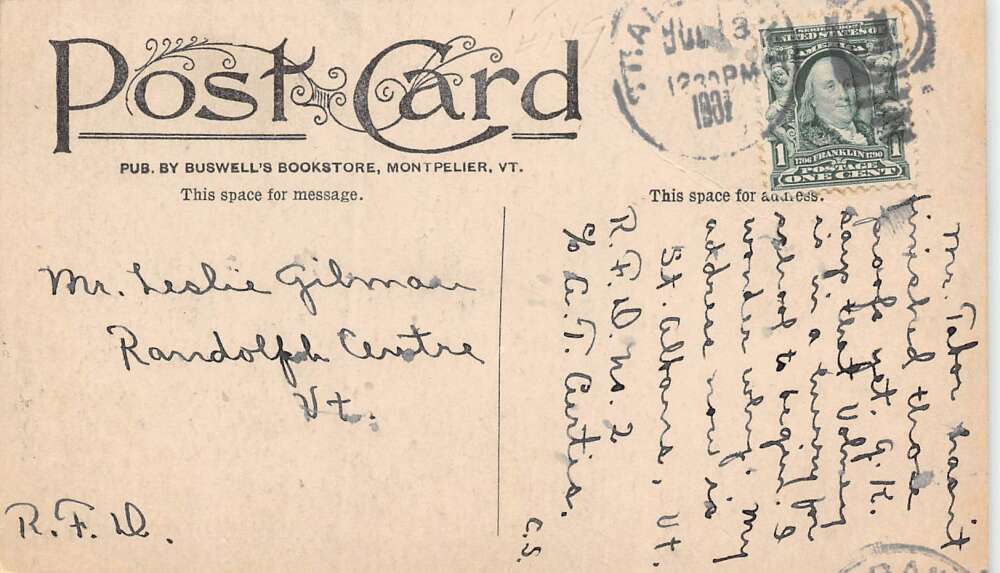 Post Card
PUB. BY BUSWELL'S BOOKSTORE, MONTPELIER, VT.
This space for message.
This space for address.
ST. AL
JUL 3
1230 PM
1907
SERIES 1902
UNITED STATES OF
AMERICA
1
1706 FRANKLIN 1790
POSTAGE
ONE CENT
1
Mr. Leslie Gilman
Randolph Centre
Vt.
R. F. D.
Mr. Tabor hasn't
finished those
proofs yet. G.K.
says that Volney
is in a hurry for
school to begin. I
wonder why. My
address now is
St. Albans, Vt.
R.F.D. no. 2
c/o A. T. Curtis.
C.S.